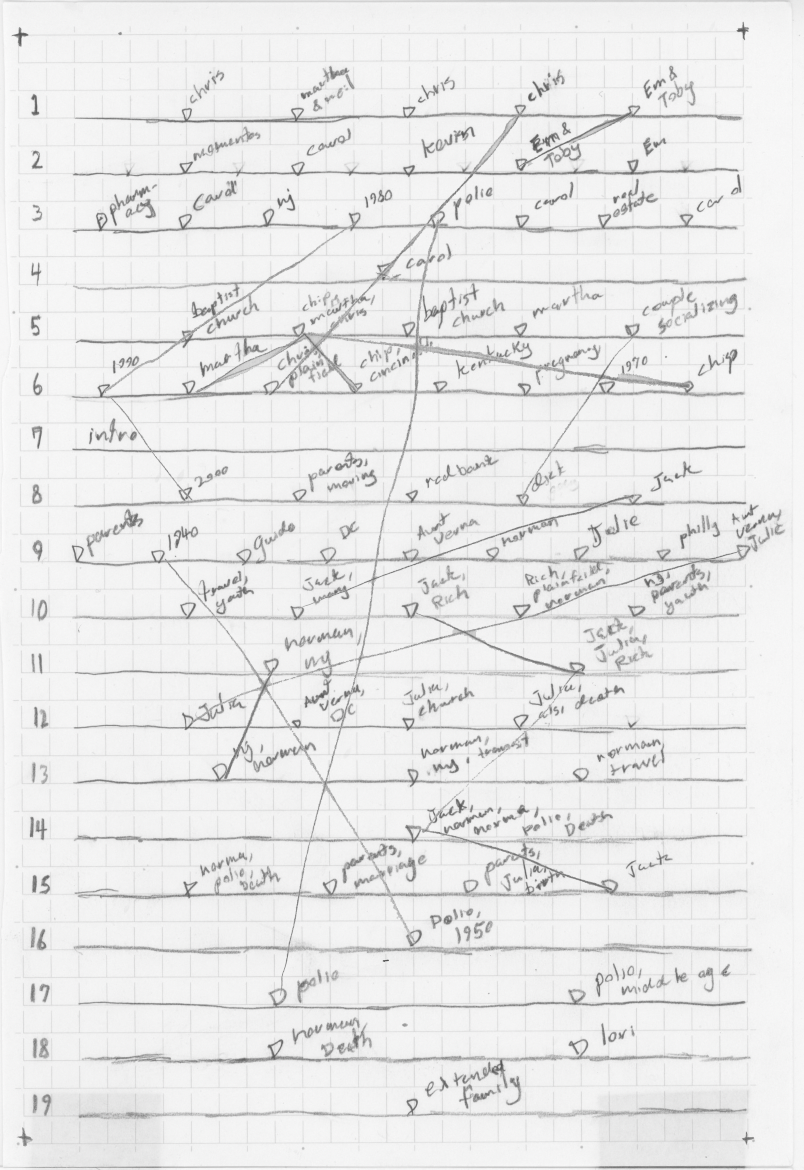 1 chris martha & neil chris chris Em & Toby
2 momentos carol kevin Em & Toby Em
3 pharmacy carol nj 1980 polio carol real estate carol
4 carol
5 baptist church chip, martha, chris baptist church martha couple socializing
6 1990 martha chris, plainfield chip, cincinati, kentucky pregnancy 1970 chip
7 intro
8 2000 parents, moving redbank dick Jack
9 parents 1940 guido DC Aunt Verna norman Julie philly Aunt Verna, Julie
10 travel, youth Jack, mary Jack, Rich Rich, plainfield, norman nj, parents, youth
11 norman, ny Jack, Julia, Rich
12 Julia Aunt Verna, DC Julia, church Julia, als, death
13 nj, norman norman, ny, transit norman, travel
14 Jack, norman, norma, polio, Death
15 norma, polio, Death parents, marriage parents, Julia, birth Jack
16 Polio, 1950
17 polio polio, middle age
18 norman, Death lori
19 extended family